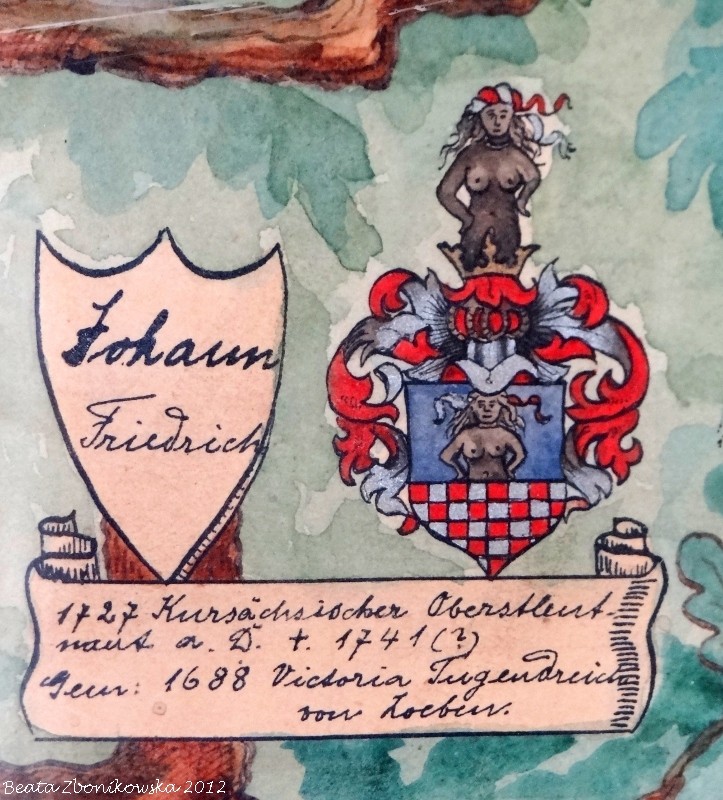 Johann
Friedrich
1727 Kursächsischer Oberstleut-
nant a. D. †. 1741 (?)
Gem: 1688 Victoria Tugendreich
von Loeben.
Beata Zbonikowska 2012